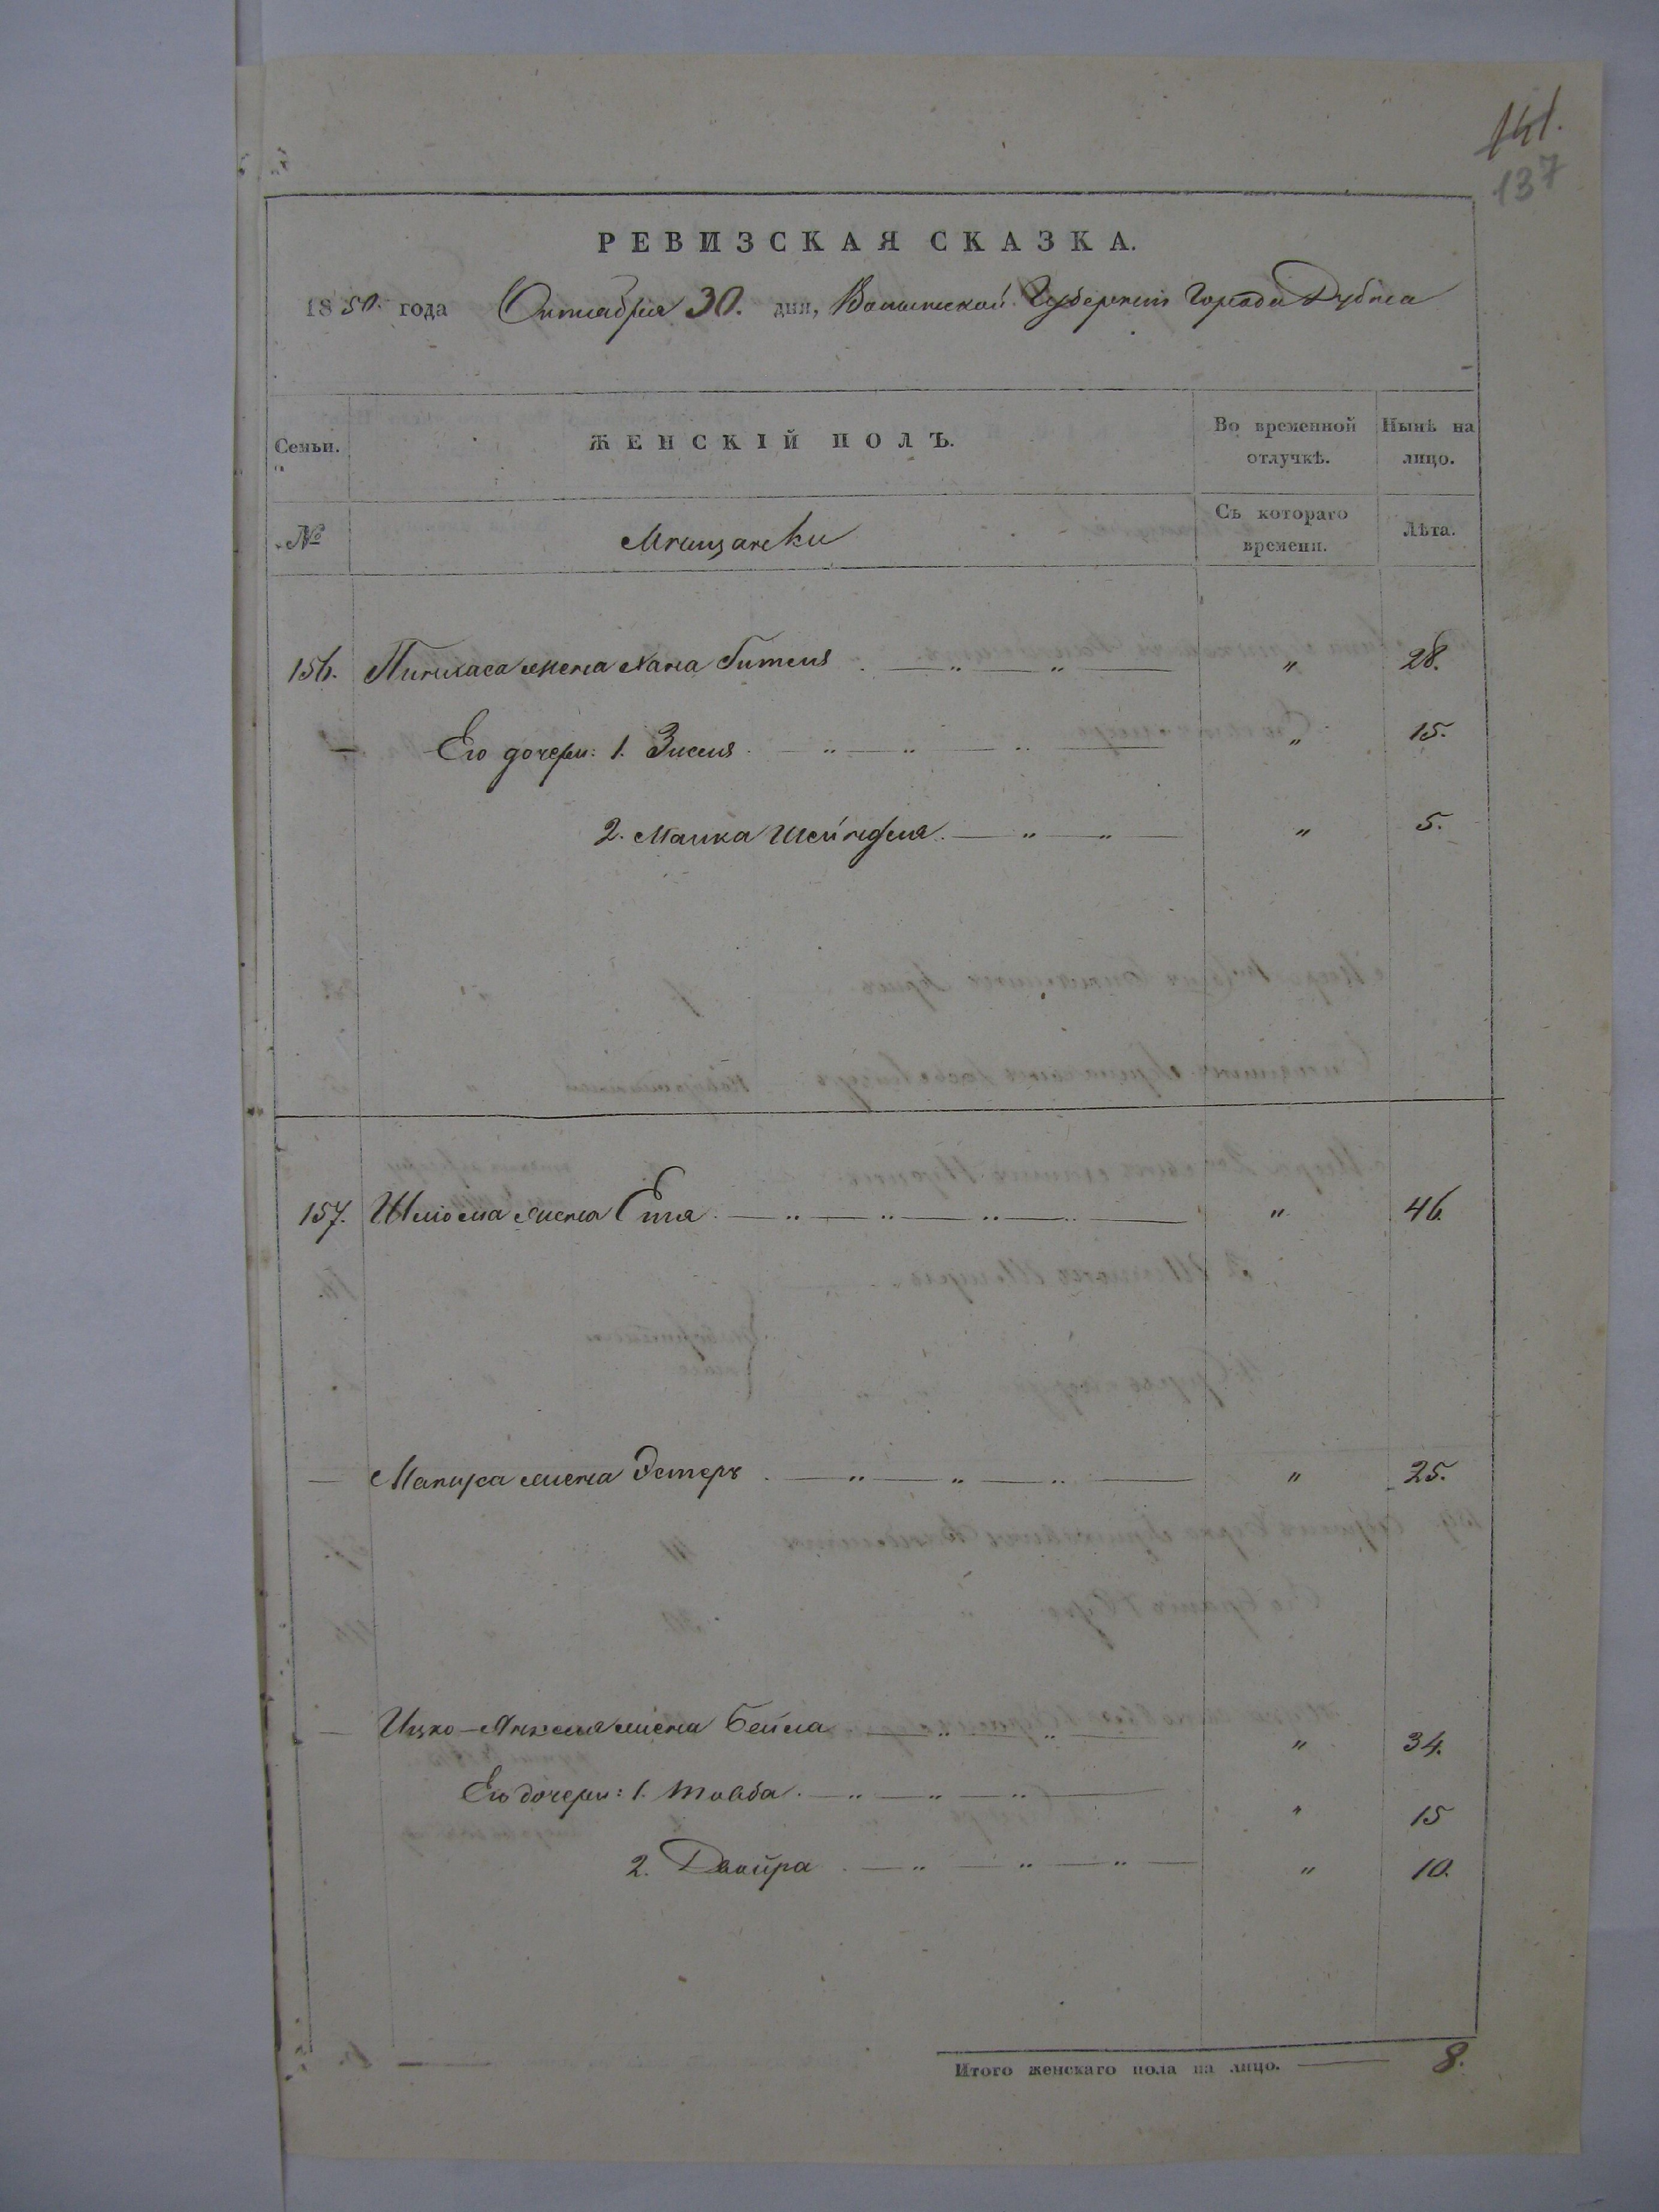 141.
137
РЕВИЗСКАЯ СКАЗКА.
1850. года Октября 30. дня, Волынской Губернии Города Дубна
Семьи. ЖЕНСКІЙ ПОЛЪ. Во временной отлучкѣ. Нынѣ на лицо.
№ Мещанеки Съ котораго времени. Лѣта.
156. Пинхаса жена Хана Гителя " 28.
Его дочери: 1. Зиселя " 15.
2. Малка Шейнделя " 5.
157. Шліома жена Етя " 46.
жена Эстеръ " 25.
Ицко-Анкеля жена Бейла " 34.
Его дочери: 1. Товба " 15
2. Двойра " 10.
Итого женскаго пола на лицо. 8.